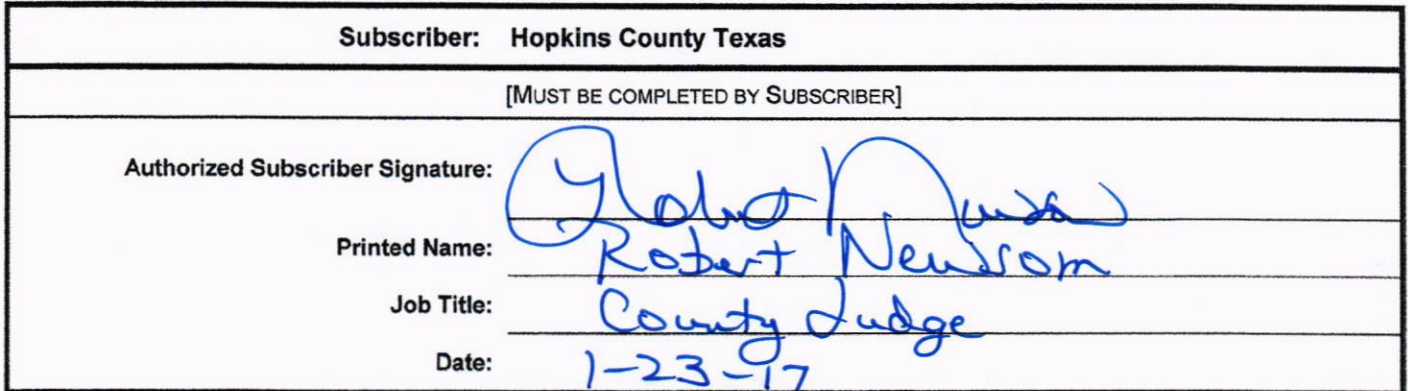 Subscriber: Hopkins County Texas
[MUST BE COMPLETED BY SUBSCRIBER]
Authorized Subscriber Signature: Robert Newsom
Printed Name: Robert Newsom
Job Title: County Judge
Date: 1-23-17